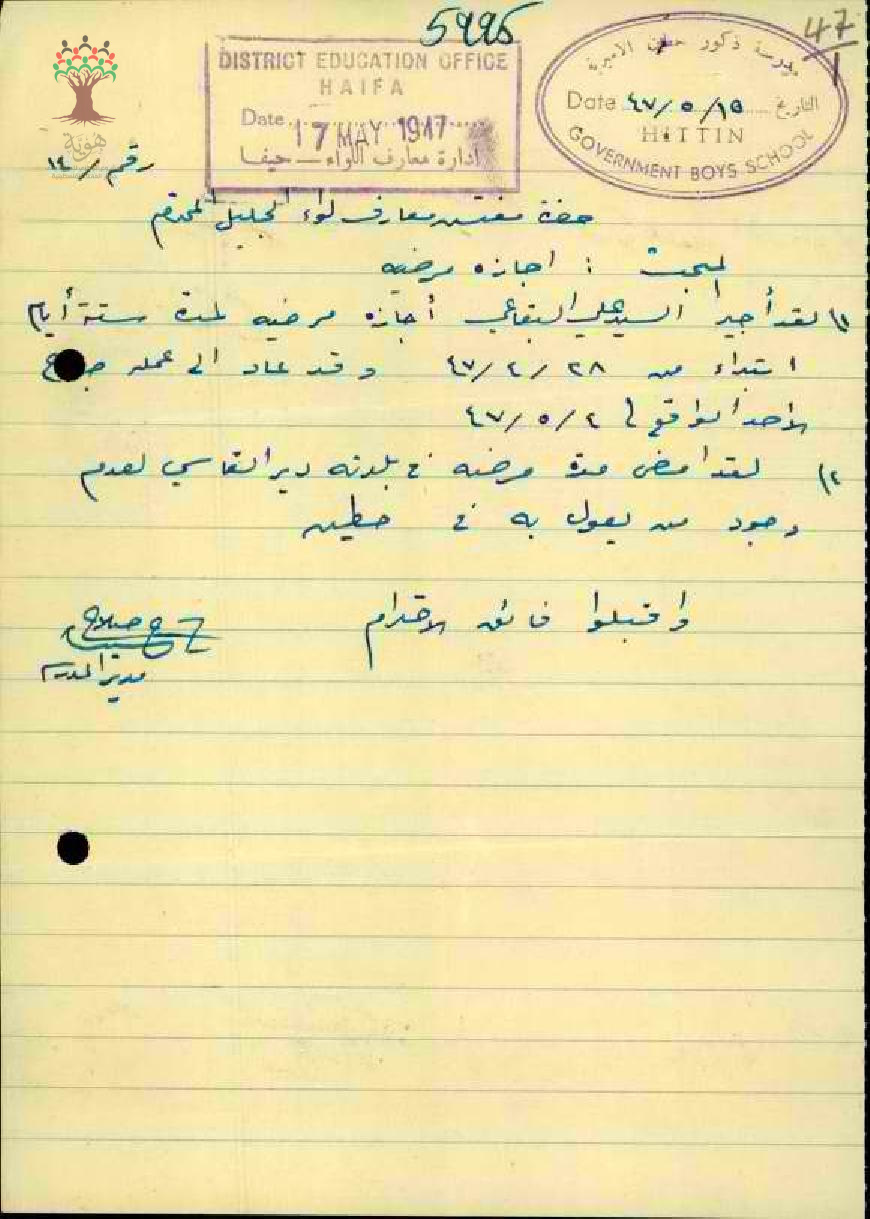 5995
47
1
DISTRICT EDUCATION OFFICE
HAIFA
Date
17 MAY 1947
ادارة معارف اللواء ــ حيفا
مدرسة ذكور حطين الاميرية
Date ٤٧/٥/١٥ التاريخ
HITTIN
GOVERNMENT BOYS SCHOOL
هوية
رقم / ١٤
حضرة مفتش معارف لواء الجليل المحترم
المبحث : اجازه مرضيه
١) لقد أجيز السيد علي البقاعي أجازه مرضيه لمدة ستة أيام
ابتداء من ٢٨ /٤ /٤٧ وقد عاد الى عمله صباح
الاحد الواقع في ٤ /٥ /٤٧
٢) لقد امضى مدة مرضه في بلدته ديرالقاسي لعدم
وجود من يعول به في حطين
واقبلوا فائق الاحترام
مدير المدرسة